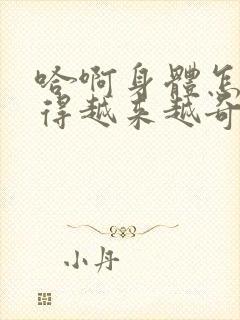 哈啊身體怎
得越来越奇
小丹